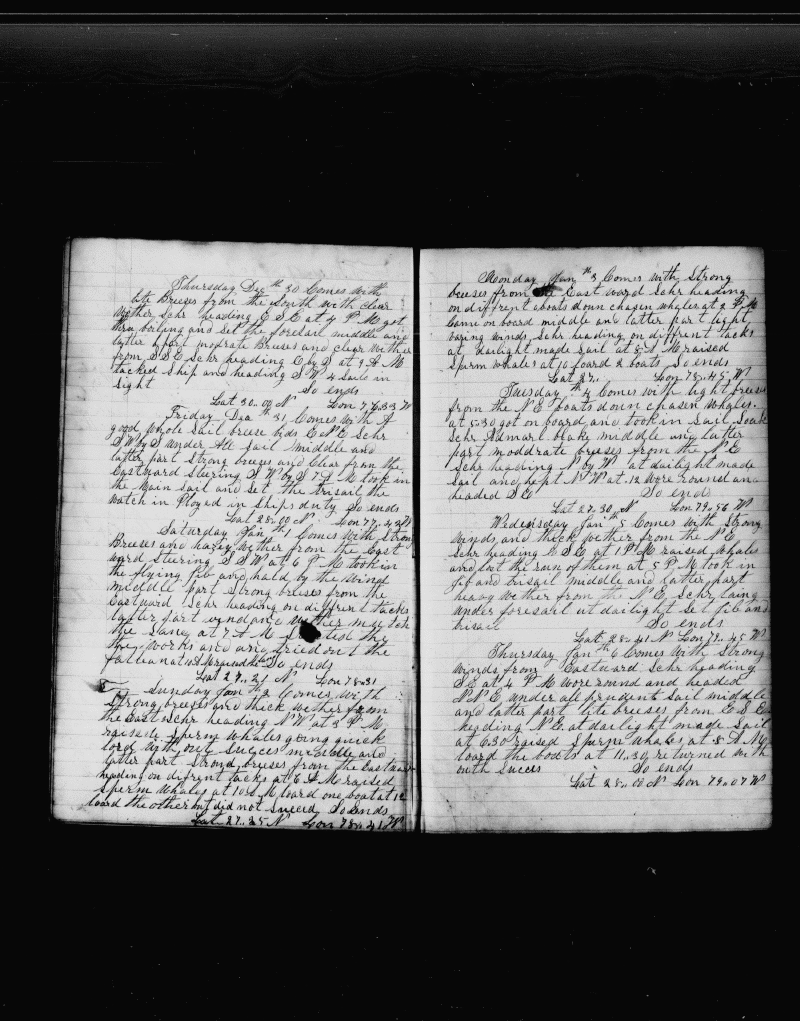 Thursday Dec 30th Comes with
lite Breeses from the South with clear
wether Schr heading E S E at 4 P M got
thru boiling and set the foresail middle and
latter part modrate Breeses and clear wether
from S S E Schr heading E by S at 9 A M
tacked Ship and heading S W 4 Sails in
Sight So ends
Lat 30..00 N Lon 76.33 W
Friday Dec 31th Comes with A
good whole Sail breese E N E Schr
S W by S under All Sail middle and
latter part Strong breeses and Clear from the
Eastward Steering S W by S 7 A M took in
the Main Sail and Set the trisail the
watch in Ployed in Ships duty So ends
Lat 28..00 N Lon 77..42 W
Saturday Jan 1th Comes with Strong
Breeses and hazey wether from the East
ward Steering S S W at 6 P M took in
the flying jib and hald by the wind
middle part Strong breeses from the
Eastward Schr heading on diffrent tacks
latter part wind and wether
the Same at 7 A M the
try works and
So ends
Lat 27..27 N Lon 78.31
Sunday Jan 2th Comes with
Strong breeses and thick wether from
the East Schr heading N W at 3 P M
raised Sperm Whales going quick
lord with out Succes middle and
latter part Strong breeses from the Eastward
heading on difrent tacks at 6 A M raised
Sperm Whales at 10 A M loard one boat at 12
loard the other but did not Suceed So Ends
Lat 27..25 N Lon 78..41 W
Monday Jan 3th Comes with Strong
breeses from the East ward Schr heading
on diffrent boats doun chasen whales at 2 P M
Came on board middle and latter part light
baring winds Schr heading on diffrent tacks
at dailight made Sail at 8 A M raised
Sperm whales at 10 loard 2 boats So ends
Lat 27.. Lon 78..45 W
Tuesday 4th Comes with light breeses
from the N E boats doun chasen whales.
at 5.30 got on board and took in Sail Spoak
Schr Admarl blake middle and latter
part moddrate breeses from the N E
Schr heading N by W at dailight made
Sail and kept N W at 12 wore round and
headed S E So ends
Lat 27..30 N Lon 79..56 W
Wednesday Jan 5th Comes with Strong
winds and thick wether from the N E
Schr heading E S E at 1 P M raised whales
and lost the run of them at 5 P M took in
jib and trisail middle and latter part
heavy wether from the N E Schr laing
under foresail at dailight Set jib and
trisail So ends
Lat 28..41 N Lon 79..45 W
Thursday Jan 6th Comes with Strong
winds from Eastward Schr heading
S E at 4 P M wore round and headed
N N E under all prudent Sail middle
and latter part lite breeses from E S E
heading N E. at dailight made Sail
at 6.30 raised Sperm Whales at 8 A M
loard the boats at 11..30 returned with
outh Succes So ends
Lat 28..00 N Lon 79..07 W